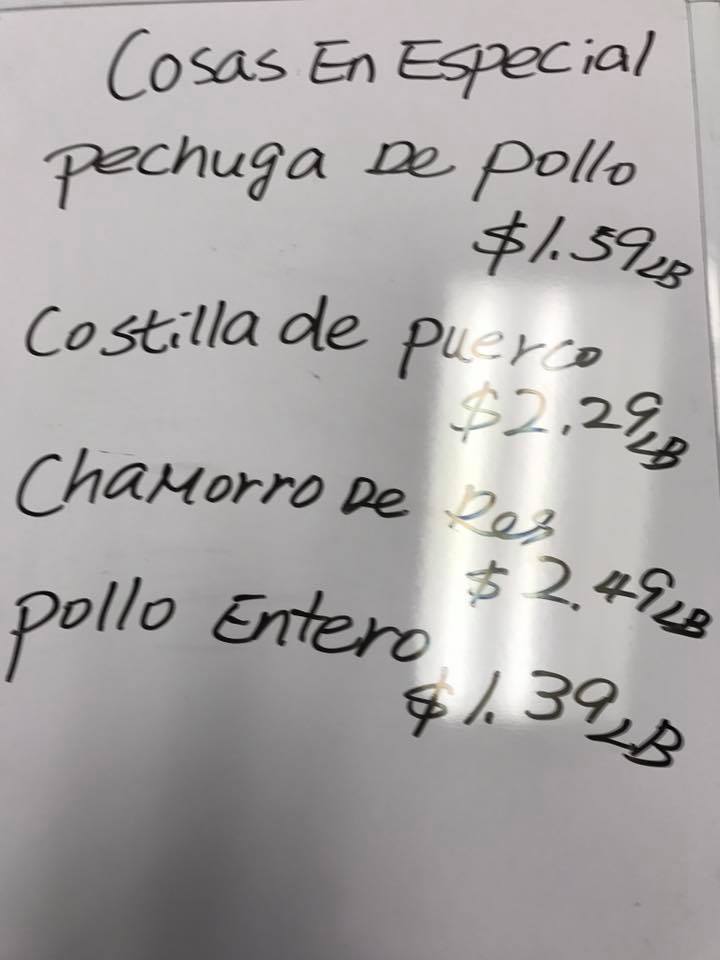 Cosas En Especial
pechuga De pollo
$1.59 LB
Costilla de puerco
$2.29 LB
Chamorro De Res
$2.49 LB
pollo Entero
$1.39 LB